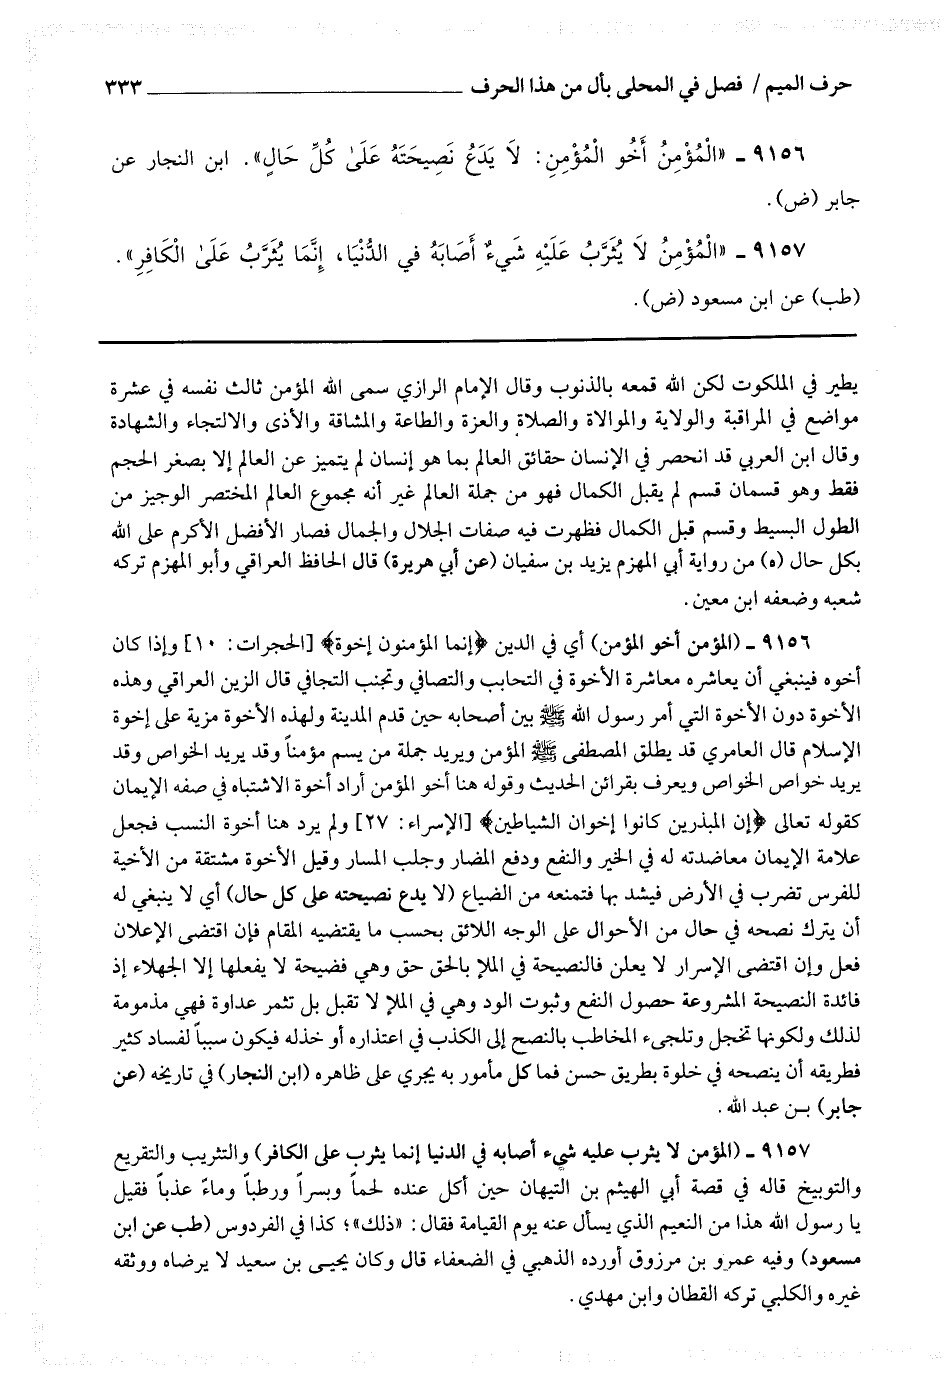 حرف الميم / فصل في المحلى بأل من هذا الحرف ــــــــــــــــــــــــــــــــــــــــ ٣٣٣
٩١٥٦ ـ «الْمُؤْمِنُ أَخُو الْمُؤْمِنِ: لَا يَدَعُ نَصِيحَتَهُ عَلَىٰ كُلِّ حَالٍ». ابن النجار عن
جابر (ض).
٩١٥٧ ـ «الْمُؤْمِنُ لَا يُثَرَّبُ عَلَيْهِ شَيءٌ أَصَابَهُ في الدُّنْيَا، إِنَّمَا يُثَرَّبُ عَلَىٰ الْكَافِرِ».
(طب) عن ابن مسعود (ض).
يطير في الملكوت لكن الله قمعه بالذنوب وقال الإمام الرازي سمى الله المؤمن ثالث نفسه في عشرة
مواضع في المراقبة والولاية والموالاة والصلاة والعزة والطاعة والمشاقة والأذى والالتجاء والشهادة
وقال ابن العربي قد انحصر في الإنسان حقائق العالم بما هو إنسان لم يتميز عن العالم إلا بصغر الحجم
فقط وهو قسمان قسم لم يقبل الكمال فهو من جملة العالم غير أنه مجموع العالم المختصر الوجيز من
الطول البسيط وقسم قبل الكمال فظهرت فيه صفات الجلال والجمال فصار الأفضل الأكرم على الله
بكل حال (ه) من رواية أبي المهزم يزيد بن سفيان (عن أبي هريرة) قال الحافظ العراقي وأبو المهزم تركه
شعبه وضعفه ابن معين.
٩١٥٦ ـ (المؤمن أخو المؤمن) أي في الدين ﴿إنما المؤمنون إخوة﴾ [الحجرات: ١٠] وإذا كان
أخوه فينبغي أن يعاشره معاشرة الأخوة في التحابب والتصافي وتجنب التجافي قال الزين العراقي وهذه
الأخوة دون الأخوة التي أمر رسول الله ﷺ بين أصحابه حين قدم المدينة ولهذه الأخوة مزية على إخوة
الإسلام قال العامري قد يطلق المصطفى ﷺ المؤمن ويريد جملة من يسم مؤمناً وقد يريد الخواص وقد
يريد خواص الخواص ويعرف بقرائن الحديث وقوله هنا أخو المؤمن أراد أخوة الاشتباه في صفه الإيمان
كقوله تعالى ﴿إن المبذرين كانوا إخوان الشياطين﴾ [الإسراء: ٢٧] ولم يرد هنا أخوة النسب فجعل
علامة الإيمان معاضدته له في الخير والنفع ودفع المضار وجلب المسار وقيل الأخوة مشتقة من الأخية
للفرس تضرب في الأرض فيشد بها فتمنعه من الضياع (لا يدع نصيحته على كل حال) أي لا ينبغي له
أن يترك نصحه في حال من الأحوال على الوجه اللائق بحسب ما يقتضيه المقام فإن اقتضى الإعلان
فعل وإن اقتضى الإسرار لا يعلن فالنصيحة في الملإ بالحق حق وهي فضيحة لا يفعلها إلا الجهلاء إذ
فائدة النصيحة المشروعة حصول النفع وثبوت الود وهي في الملإ لا تقبل بل تثمر عداوة فهي مذمومة
لذلك ولكونها تخجل وتلجىء المخاطب بالنصح إلى الكذب في اعتذاره أو خذله فيكون سبباً لفساد كثير
فطريقه أن ينصحه في خلوة بطريق حسن فما كل مأمور به يجري على ظاهره (ابن النجار) في تاريخه (عن
جابر) بن عبد الله.
٩١٥٧ ـ (المؤمن لا يثرب عليه شيء أصابه في الدنيا إنما يثرب على الكافر) والتثريب والتقريع
والتوبيخ قاله في قصة أبي الهيثم بن التيهان حين أكل عنده لحماً وبسراً ورطباً وماءً عذباً فقيل
يا رسول الله هذا من النعيم الذي يسأل عنه يوم القيامة فقال: «ذلك»؛ كذا في الفردوس (طب عن ابن
مسعود) وفيه عمرو بن مرزوق أورده الذهبي في الضعفاء قال وكان يحيى بن سعيد لا يرضاه ووثقه
غيره والكلبي تركه القطان وابن مهدي.